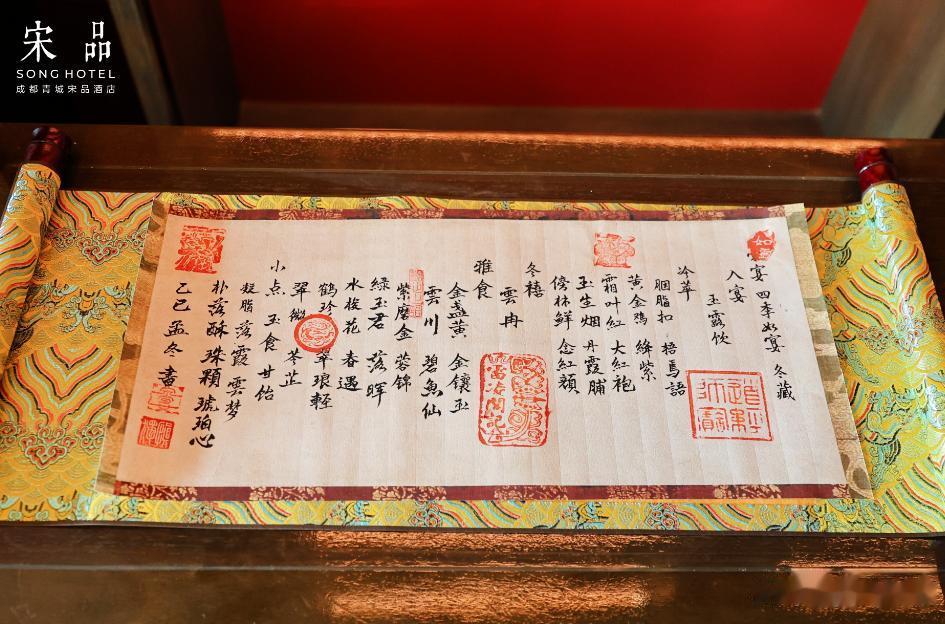 宋品
SONG HOTEL
成都青城宋品酒店
宴 四季如宴 冬藏
入宴
玉露饮
冷荤
胭脂扣 梧馬語
黄金鸡 絳紫
霜叶红 大红袍
玉生烟 丹霞脯
傍林鲜 念紅顏
冬禧
雲冉
雅食
金盏黄 金鑲玉
雲川 碧魚仙
紫磨金 蓉锦
綠玉君 落暉
水梭花 春遇
鹤珍 翠琅輕
翠微 苓芷
小点 玉食 甘饴
凝脂 落霞 雲梦
朴落酥 珠顆 琥珀心
乙巳 孟冬 書